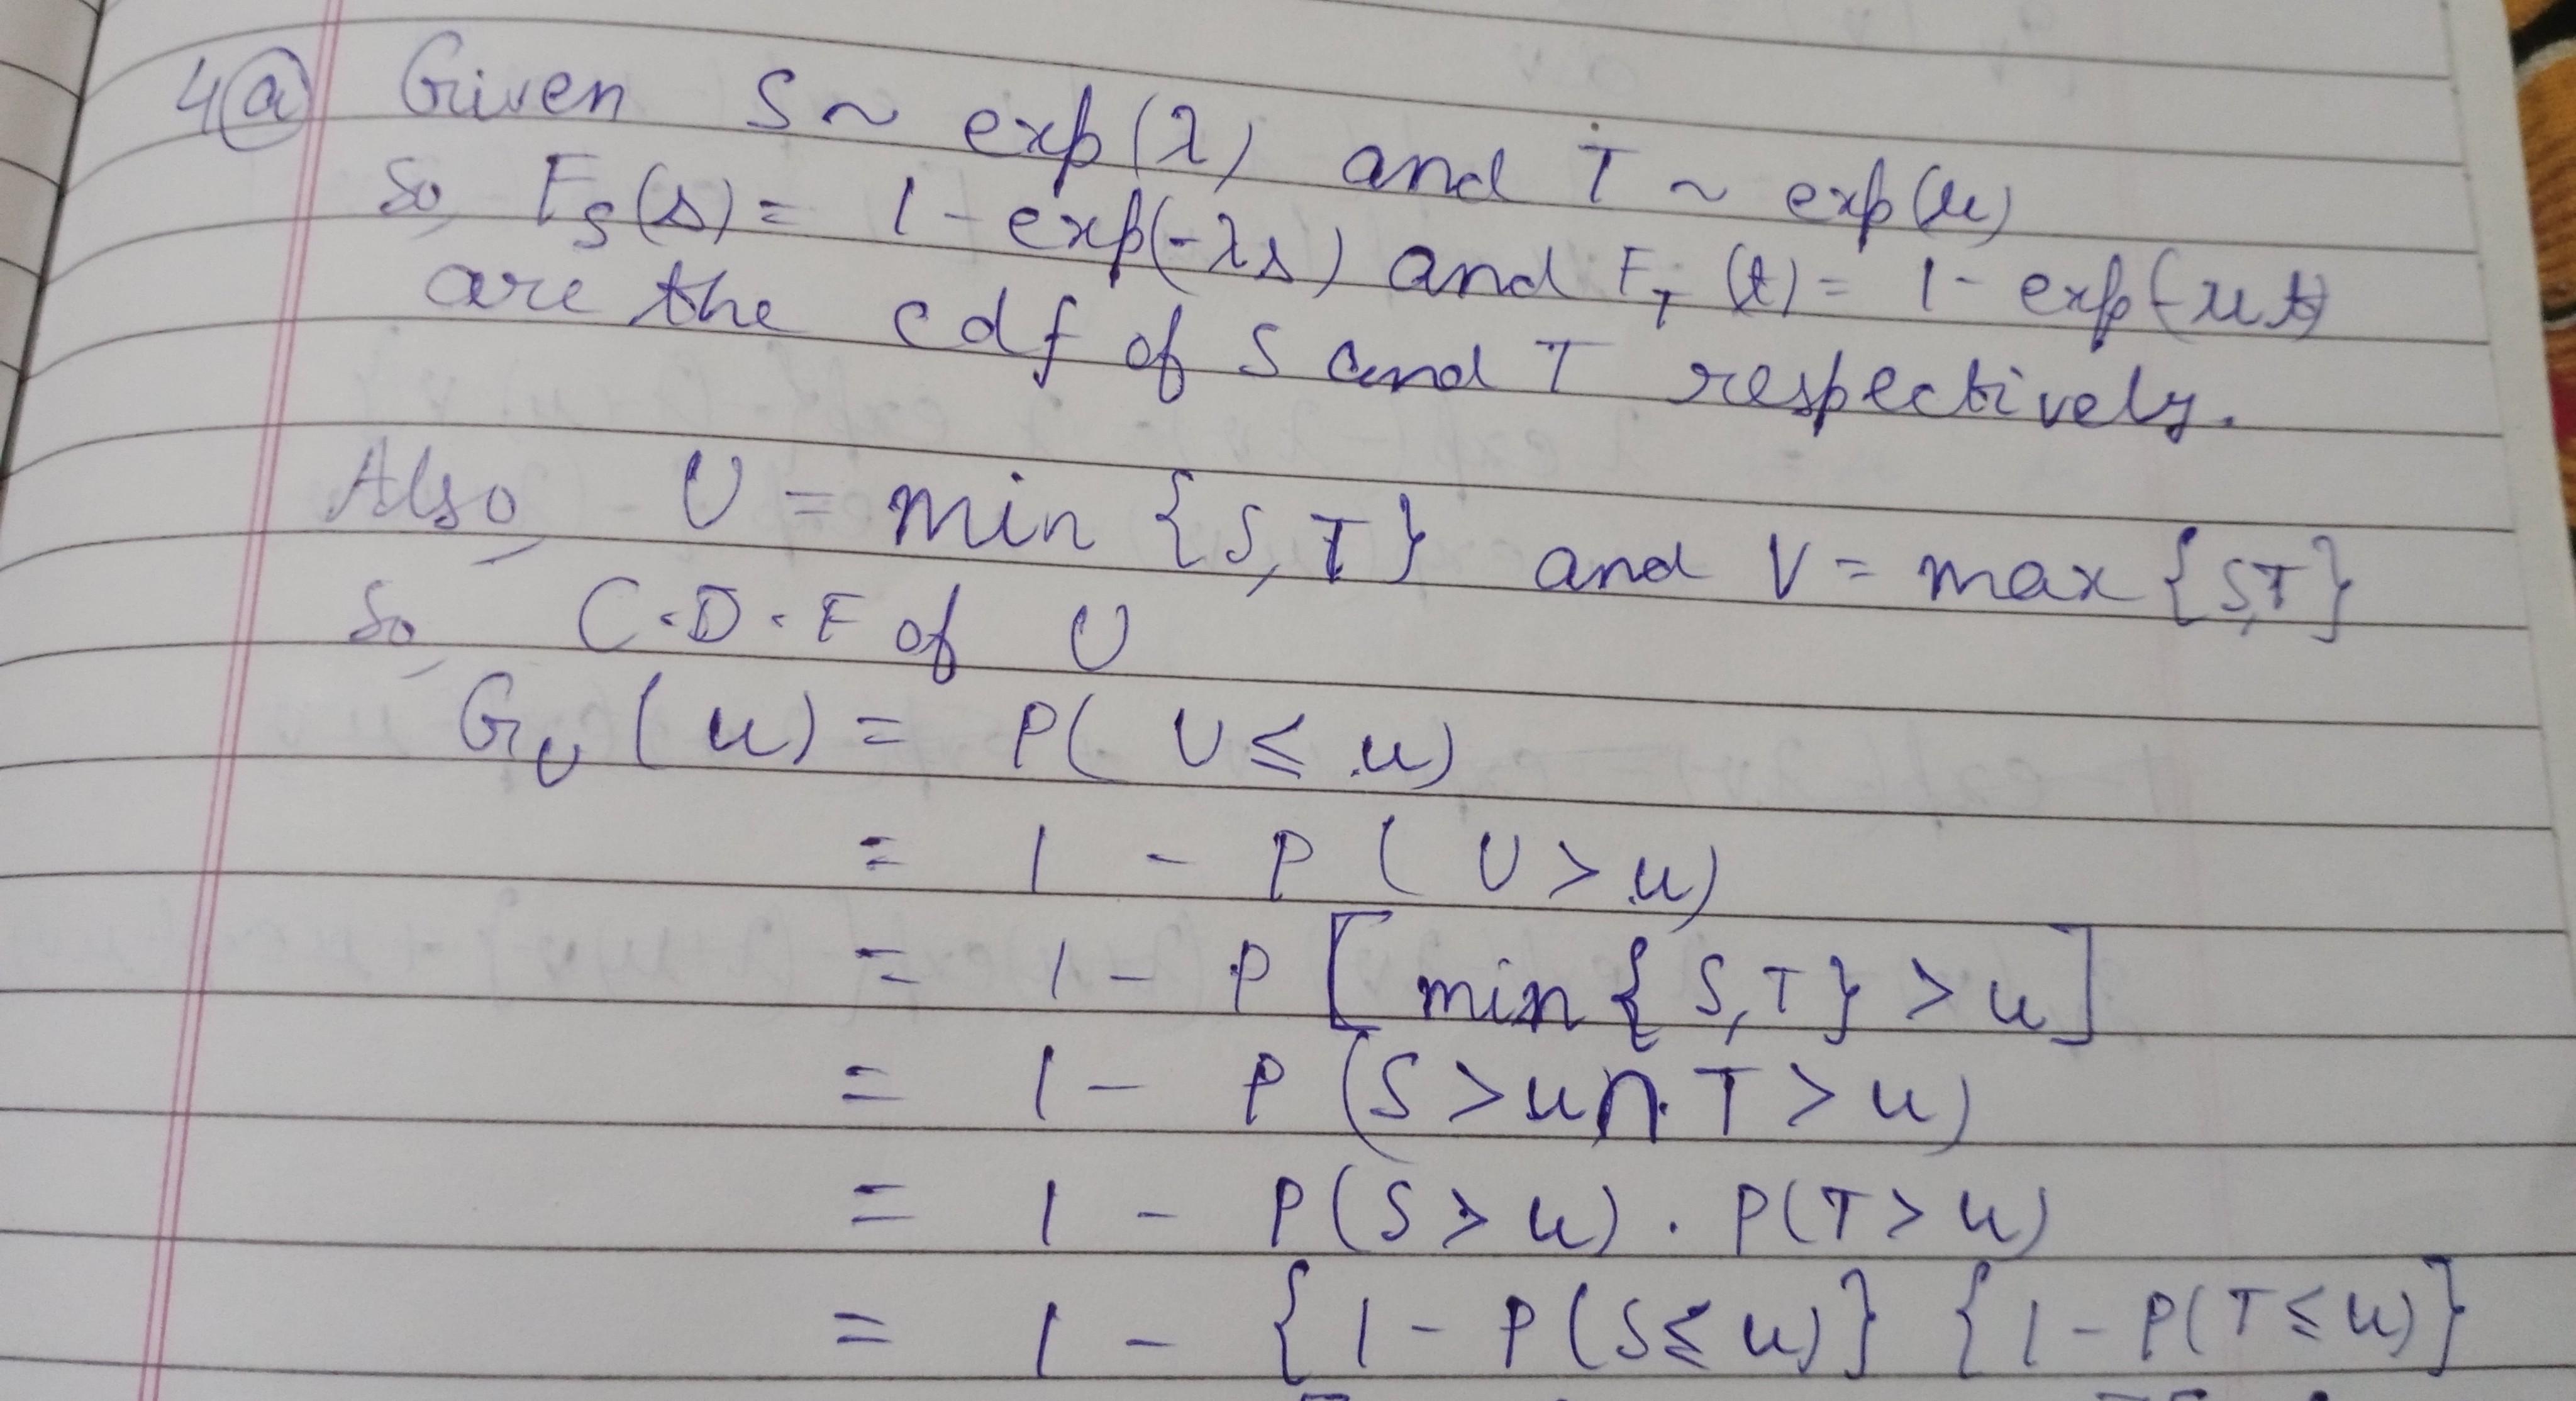 4(a) Given S ~ exp(λ) and T ~ exp(μ)
So, F_S(s) = 1 - exp(-λs) and F_T(t) = 1 - exp(-μt)
are the cdf of S and T respectively.
Also, U = min {S, T} and V = max {S,T}
So, C.D.F of U
G_U(u) = P( U ≤ u)
= 1 - P ( U > u)
= 1 - P [ min { S, T } > u ]
= 1 - P (S > u ∩ T > u)
= 1 - P(S > u) . P(T > u)
= 1 - { 1 - P(S ≤ u)} { 1 - P(T ≤ u)}